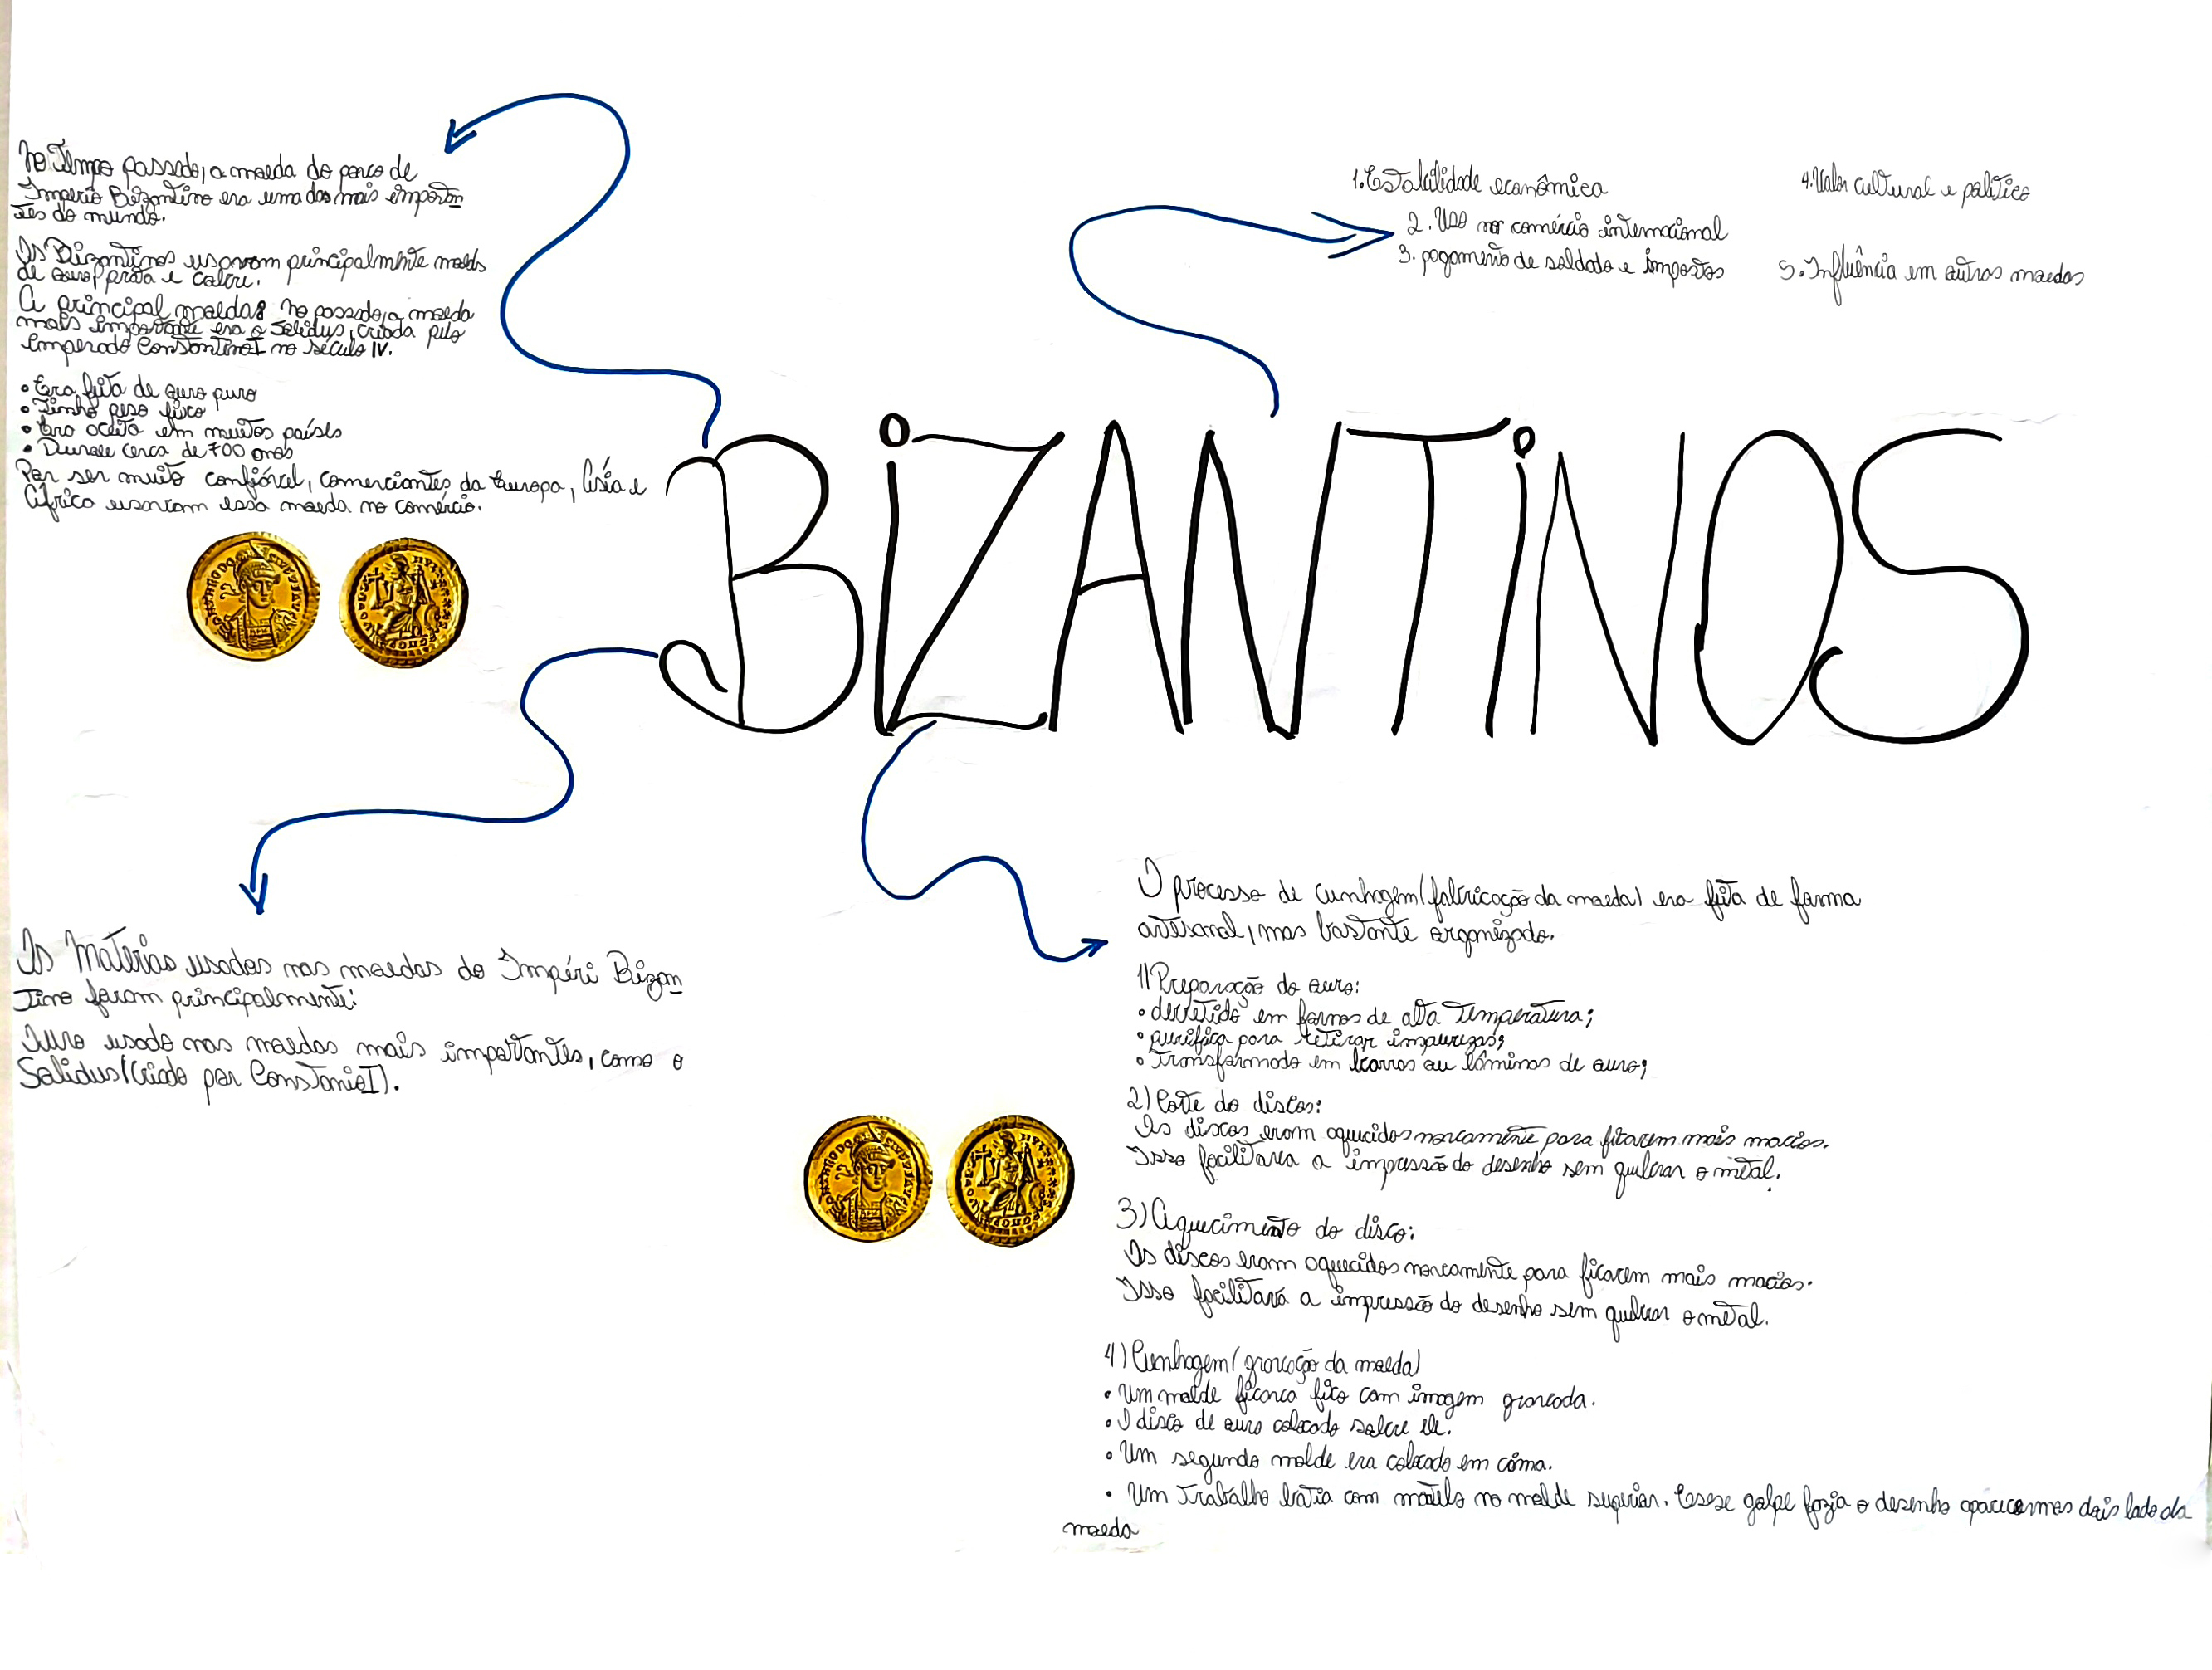 No Tempo passado, a moeda do povo de
Imperio Bizantino era uma das mais importan
tes do mundo.
Os Bizantinos usavam principalmente moeds
de ouro, prata e cobre.
A principal moeda: no passado, a moeda
mais importante era o Solidus, criada pelo
emperado Constantino I no século IV.
• Era feita de ouro puro
• Tinha peso fixo
• Era aceita em muitos países
• Durou cerca de 700 anos
Por ser muito confiável, comerciantes da Europa, Ásia e
África usavam essa moeda no comércio.
1. Estabilidade econômica
2. Uso no comércio internacional
3. pagamento de soldado e impostos
4. Valor cultural e politico
5. Influência em outras moedas
BiZANTiNOS
Os Materias usados nas moedas do Impéri Bizan
tino foram principalmente:
Ouro usado nas moedas mais importantes, como o
Solidus (criado por Constanio I).
O processo de cunhagem (fabricação da moeda) era feita de forma
artesanal, mas bastante organizado.
1) Preparação do ouro:
• derretido em fornos de alta temperatura;
• purifica para retirar impurezas;
• Transformado em barras ou lâminas de ouro;
2) Corte do discos:
Os discos eram aquecidos novamente para ficarem mais macios.
Isso facilitava a impressão do desenho sem quebrar o metal.
3) Aquecimento do disco:
Os discos eram aquecidos novamente para ficarem mais macios.
Isso facilitava a impressão do desenho sem quebrar o metal.
4) Cunhagem (gravação da moeda)
• Um molde ficava fixo com imagem gravada.
• O disco de ouro colocado sobre ele.
• Um segundo molde era colocado em cima.
• Um trabalho batia com martelo no molde superior. Essse golpe fazia o desenho aparecer nos dois lado da
moeda